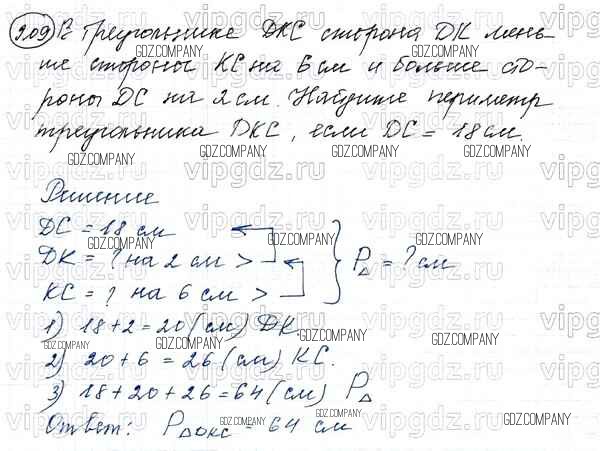 9.09 В треугольнике DKC сторона DK мень-
ше стороны KC на 6 см и больше сто-
роны DC на 2 см. Найдите периметр
треугольника DKC, если DC = 18 см.
Решение
DC = 18 см
DK = ? на 2 см >
P△ = ? см
KC = ? на 6 см >
1) 18 + 2 = 20 (см) DK.
2) 20 + 6 = 26 (см) KC.
3) 18 + 20 + 26 = 64 (см) P△
Ответ: P△DKC = 64 см
vipgdz.ru
GDZ.COMPANY